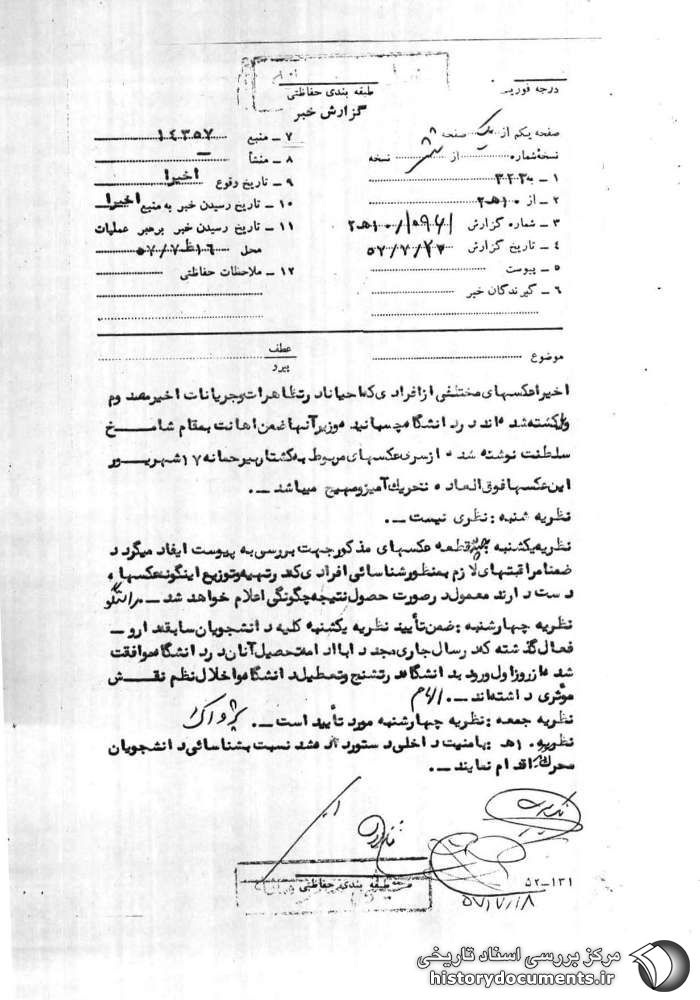 درجه فوریت
طبقه بندی حفاظتی
گزارش خبر
صفحه یکم از یک صفحه
نسخه شماره از شش نسخه
۱ ـ به ۳۲۲
۲ ـ از ۱۰ هـ ۲
۳ ـ شماره گزارش
۴ ـ تاریخ گزارش
۵ ـ پیوست
۶ ـ گیرندگان خبر
۷ ـ منبع ۱۴۳۵۷
۸ ـ منشأ ـ
۹ ـ تاریخ وقوع اخیرا
۱۰ ـ تاریخ رسیدن خبر به منبع اخیرا
۱۱ ـ تاریخ رسیدن خبر برهبر عملیات
محل ۵۷/۷/۱۶
۱۲ ـ ملاحظات حفاظتی
موضوع
عطف
پیرو
اخیرا عکسهای مختلفی از افرادی که احیانا در تظاهرات و جریانات اخیر مصدوم
و یا کشته شده اند در دانشگاه چسبانیده و زیر آنها ضمن اهانت بمقام شامخ
سلطنت نوشته شده از سری عکسهای مربوط به کشتار بیرحمانه ۱۷ شهریور
این عکسها فوق العاده تحریک آمیز و مهیج میباشد ـ.
نظریه شنبه : نظری نیست ـ.
نظریه یکشنبه قطعه عکسهای مذکور جهت بررسی به پیوست ایفاد میگردد
ضمنا مراقبتهای لازم بمنظور شناسائی افرادی که در تهیه و توزیع اینگونه عکسها
دست دارند معمول در صورت حصول نتیجه چگونگی اعلام خواهد شد ـ.
نظریه چهارشنبه : ضمن تأیید نظریه یکشنبه کلیه دانشجویان سابقه دار و ـ
فعال گذشته که در سال جاری مجددا با ادامه تحصیل آنان در دانشگاه موافقت
شده از روز اول ورود به دانشگاه در تشنج و تعطیل دانشگاه و اخلال نظم نقش
موثری داشته اند ـ.
نظریه جمعه : نظریه چهارشنبه مورد تأیید است ـ. پژواک
نظریه ۱۰ هـ : بامنیت داخلی دستور داده شد نسبت بشناسائی دانشجویان
محرک اقدام نمایند ـ.
طبقه بندی حفاظتی
۵۲-۱۳۱
۵۷/۷/۱۸
مرکز بررسی اسناد تاریخی
historydocuments.ir